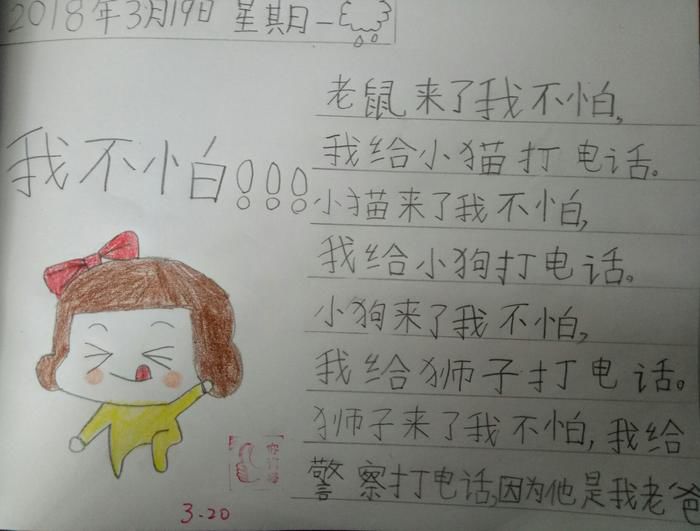 2018年3月19日 星期一
我不怕!!!
老鼠来了我不怕,
我给小猫打电话。
小猫来了我不怕,
我给小狗打电话。
小狗来了我不怕,
我给狮子打电话。
狮子来了我不怕,我给
警察打电话,因为他是我老爸
3.20